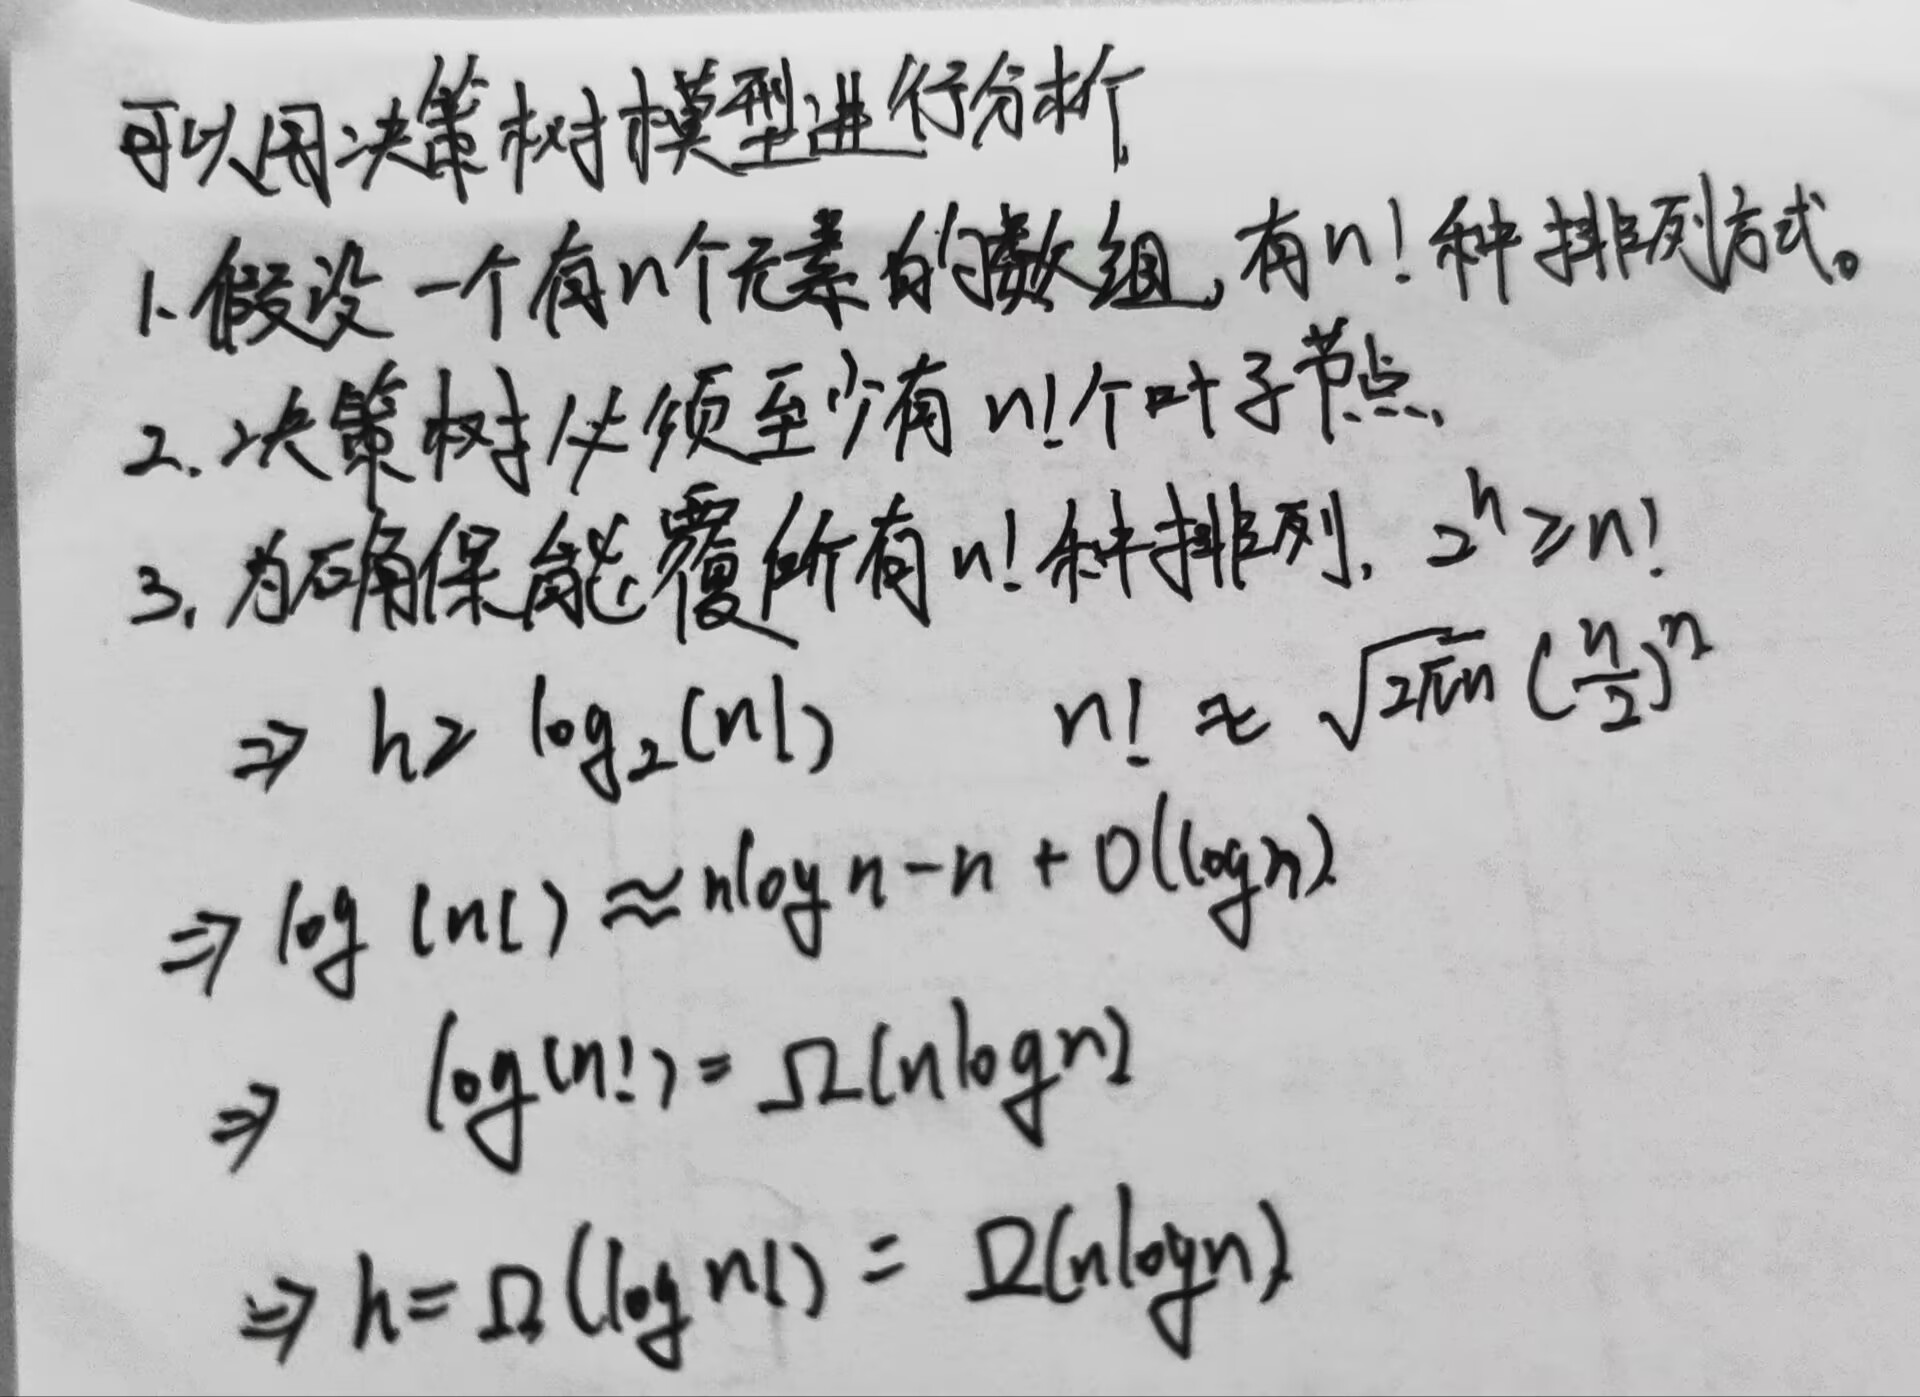 可以用决策树模型进行分析
1. 假设一个有n个元素的数组,有n!种排列方式。
2. 决策树必须至少有n!个叶子节点,
3. 为确保能覆所有n!种排列, 2^h ≥ n!
⇒ h ≥ log₂(n!) n! ≈ √(2πn) (n/2)^n
⇒ log(n!) ≈ nlogn - n + O(logn)
⇒ log(n!) = Ω(nlogn)
⇒ h = Ω(log n!) = Ω(nlogn)